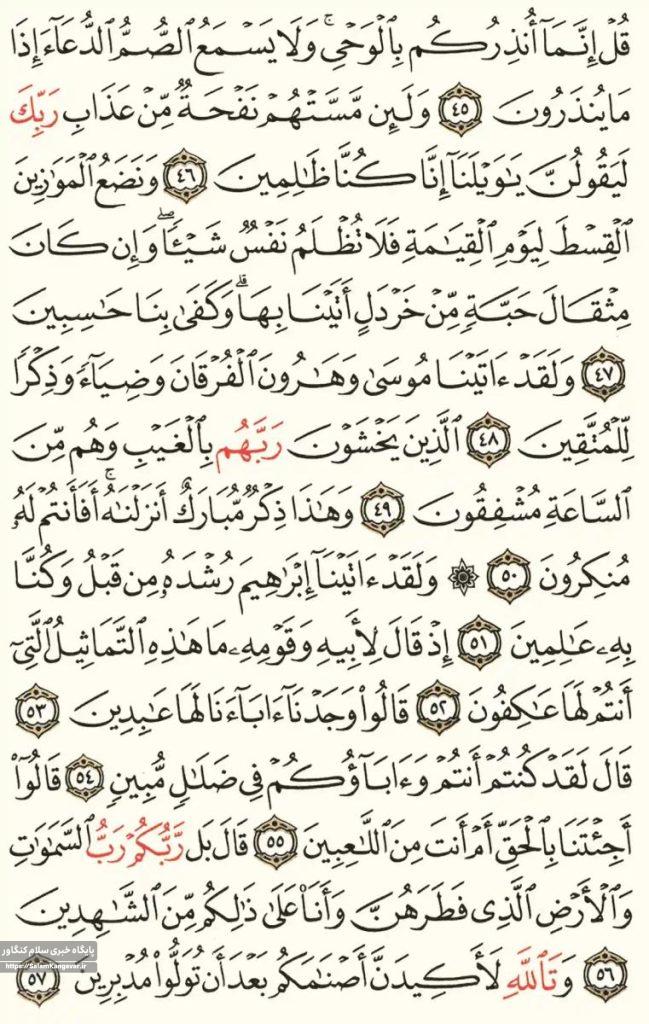 قُلْ إِنَّمَآ أُنذِرُكُم بِٱلْوَحْىِ ۚ وَلَا يَسْمَعُ ٱلصُّمُّ ٱلدُّعَآءَ إِذَا
مَا يُنذَرُونَ ٤٥ وَلَئِن مَّسَّتْهُمْ نَفْحَةٌ مِّنْ عَذَابِ رَبِّكَ
لَيَقُولُنَّ يَٰوَيْلَنَآ إِنَّا كُنَّا ظَٰلِمِينَ ٤٦ وَنَضَعُ ٱلْمَوَٰزِينَ
ٱلْقِسْطَ لِيَوْمِ ٱلْقِيَٰمَةِ فَلَا تُظْلَمُ نَفْسٌ شَيْـًٔا ۖ وَإِن كَانَ
مِثْقَالَ حَبَّةٍ مِّنْ خَرْدَلٍ أَتَيْنَا بِهَا ۗ وَكَفَىٰ بِنَا حَٰسِبِينَ
٤٧ وَلَقَدْ ءَاتَيْنَا مُوسَىٰ وَهَٰرُونَ ٱلْفُرْقَانَ وَضِيَآءً وَذِكْرًا
لِّلْمُتَّقِينَ ٤٨ ٱلَّذِينَ يَخْشَوْنَ رَبَّهُم بِٱلْغَيْبِ وَهُم مِّنَ
ٱلسَّاعَةِ مُشْفِقُونَ ٤٩ وَهَٰذَا ذِكْرٌ مُّبَارَكٌ أَنزَلْنَٰهُ ۚ أَفَأَنتُمْ لَهُۥ
مُنكِرُونَ ٥٠ ۞ وَلَقَدْ ءَاتَيْنَآ إِبْرَٰهِيمَ رُشْدَهُۥ مِن قَبْلُ وَكُنَّا
بِهِۦ عَٰلِمِينَ ٥١ إِذْ قَالَ لِأَبِيهِ وَقَوْمِهِۦ مَا هَٰذِهِ ٱلتَّمَاثِيلُ ٱلَّتِىٓ
أَنتُمْ لَهَا عَٰكِفُونَ ٥٢ قَالُوا۟ وَجَدْنَآ ءَابَآءَنَا لَهَا عَٰبِدِينَ ٥٣
قَالَ لَقَدْ كُنتُمْ أَنتُمْ وَءَابَآؤُكُمْ فِى ضَلَٰلٍ مُّبِينٍ ٥٤ قَالُوٓا۟
أَجِئْتَنَا بِٱلْحَقِّ أَمْ أَنتَ مِنَ ٱللَّٰعِبِينَ ٥٥ قَالَ بَل رَّبُّكُمْ رَبُّ ٱلسَّمَٰوَٰتِ
وَٱلْأَرْضِ ٱلَّذِى فَطَرَهُنَّ وَأَنَا۠ عَلَىٰ ذَٰلِكُم مِّنَ ٱلشَّٰهِدِينَ
٥٦ وَتَٱللَّهِ لَأَكِيدَنَّ أَصْنَٰمَكُم بَعْدَ أَن تُوَلُّوا۟ مُدْبِرِينَ ٥٧
پایگاه خبری سلام کنگاور
https://SalamKangavar.ir